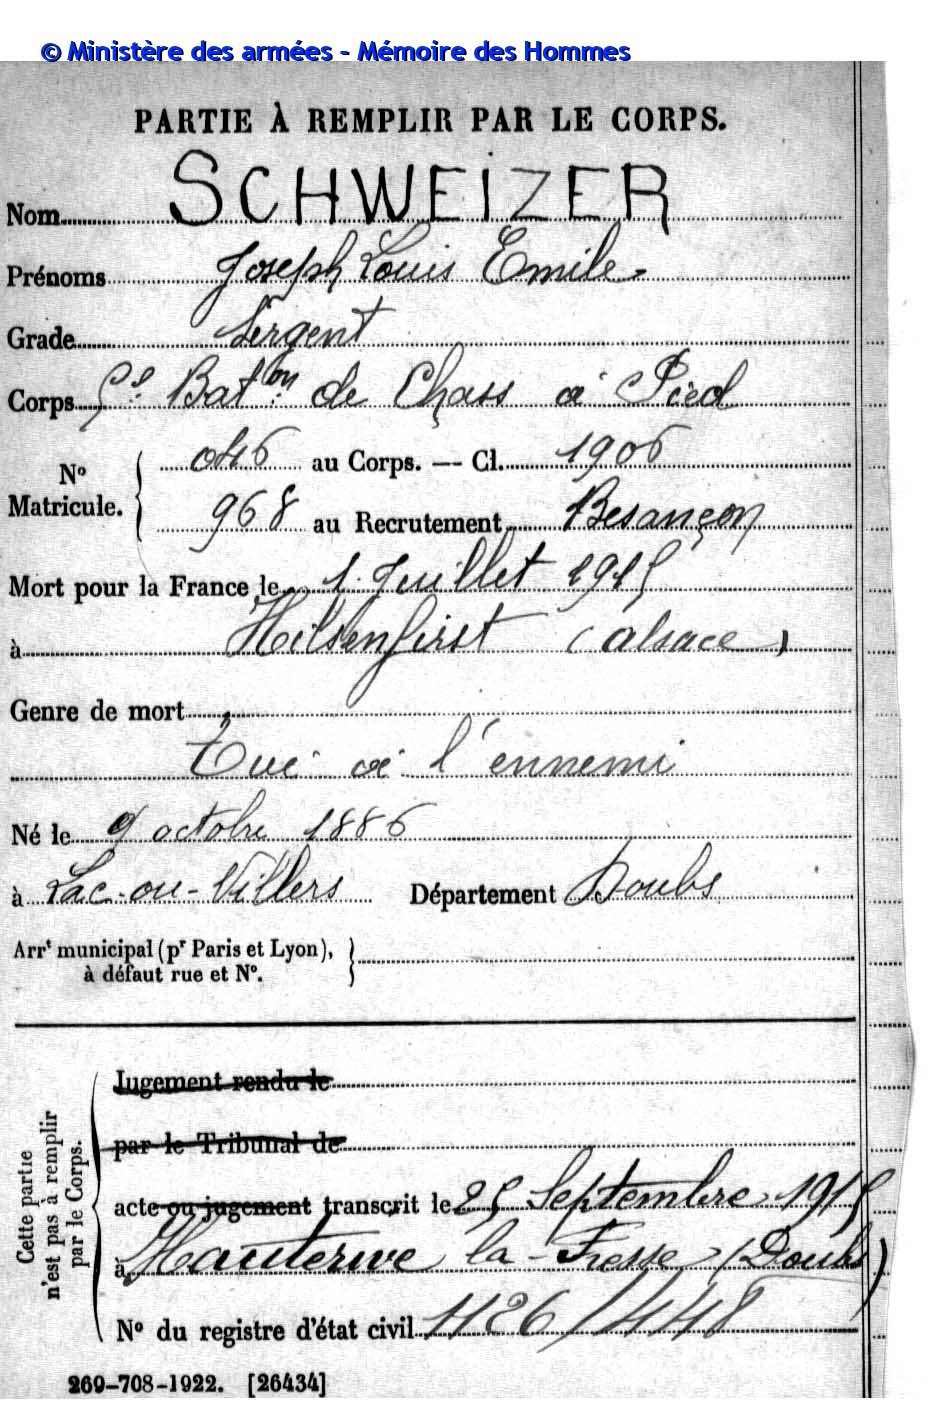 © Ministère des armées - Mémoire des Hommes
PARTIE À REMPLIR PAR LE CORPS.
Nom SCHWEIZER
Prénoms Joseph Louis Emile
Grade Sergent
Corps Bat^on de Chass à Pied
N° Matricule. 046 au Corps. — Cl. 1906
968 au Recrutement Besançon
Mort pour la France le 1 Juillet 1915
à Hilsenfirst (alsace)
Genre de mort
Tué à l'ennemi
Né le 9 octobre 1886
à Lac-ou-Villers Département Doubs
Arr^t municipal (p^r Paris et Lyon),
à défaut rue et N°.
Cette partie n'est pas à remplir par le Corps.
Jugement rendu le
par le Tribunal de
acte ou jugement transcrit le 25 Septembre 1915
à Hauterive la-Fresse (Doubs)
N° du registre d'état civil 1126/448
269-708-1922. [26434]